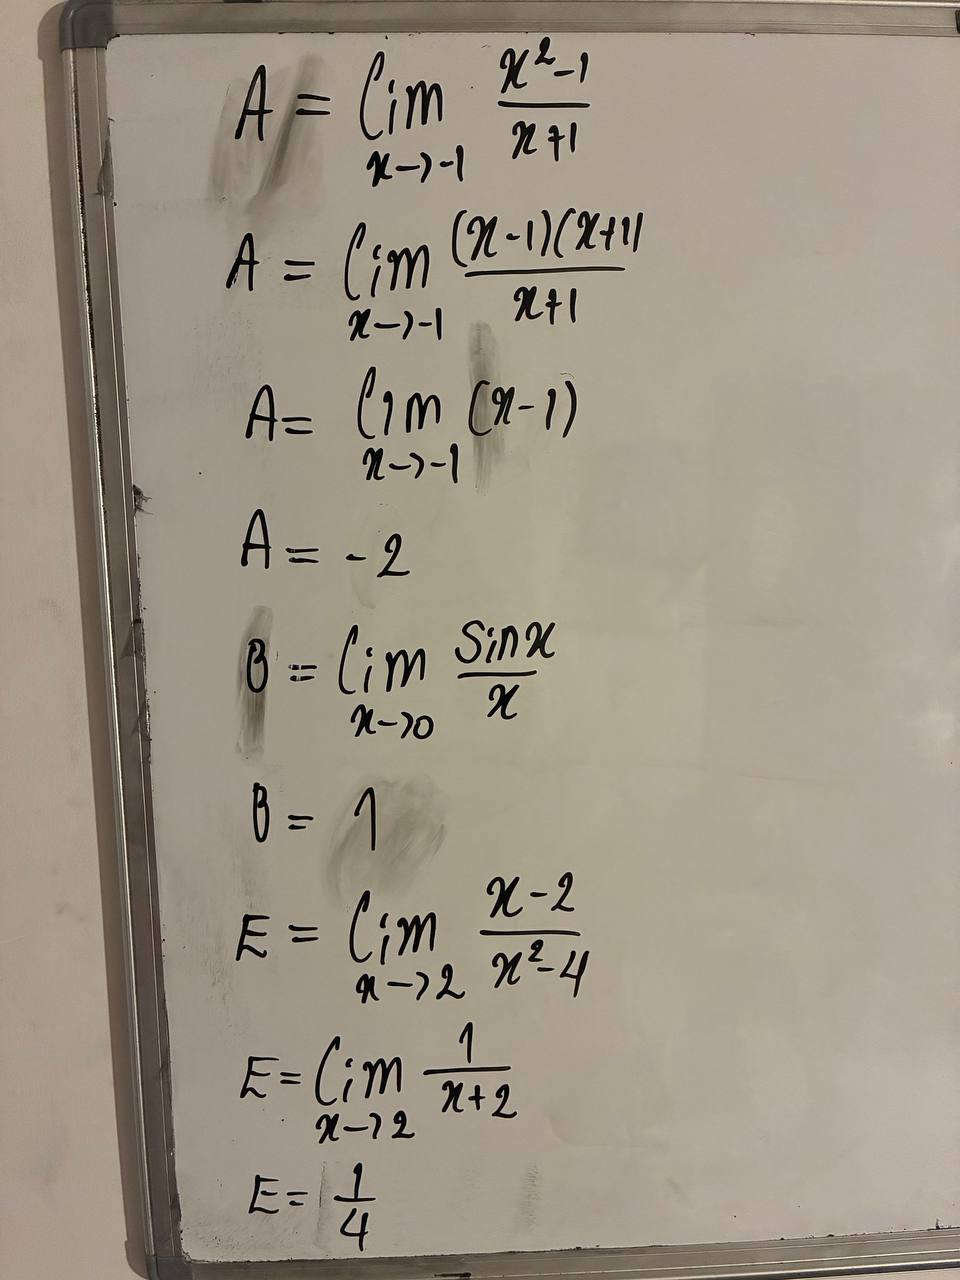 A = lim x→-1 (x²-1)/(x+1)
A = lim x→-1 (x-1)(x+1)/(x+1)
A = lim x→-1 (x-1)
A = -2
B = lim x→0 sinx/x
B = 1
E = lim x→2 (x-2)/(x²-4)
E = lim x→2 1/(x+2)
E = 1/4